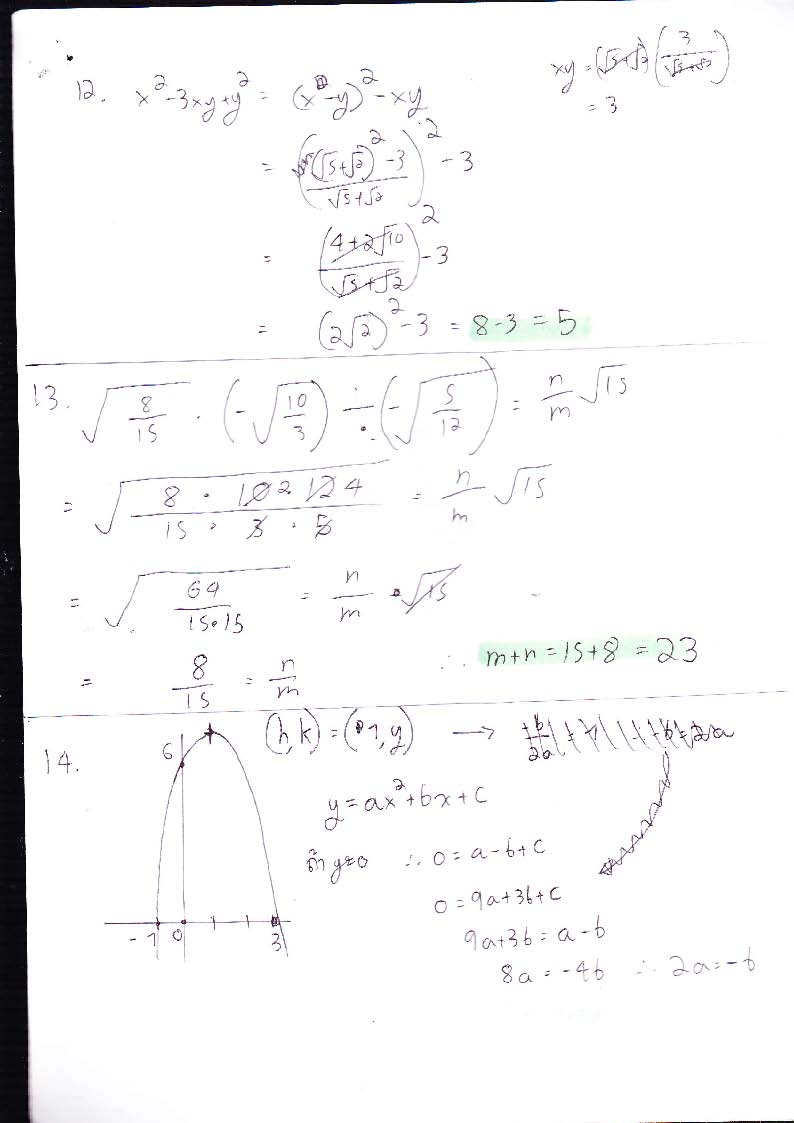 12. x² - 3xy + y² = (x - y)² - xy
xy = (√5+√2)(3/(√5+√2))
= 3
= (((√5+√2)² - 3)/(√5+√2))² - 3
= ((4+2√10)/(√5+√2))² - 3
= (2√2)² - 3 = 8-3 = 5
13. √(8/15) · (-√(10/3)) ÷ (-√(5/12)) = n/m √15
= √((8 · 10 2 12 4)/(15 · 3 · 5)) = n/m √15
= √(64/(15·15)) = n/m · √15
= 8/15 = n/m ∴ m+n = 15+8 = 23
14. (h,k) = (1,y) →
6
y = ax²+bx+c
ถ้า y=0 ∴ 0 = a-b+c
0 = 9a+3b+c
9a+3b = a-b
-1 0 3
8a = -4b ∴ 2a = -b